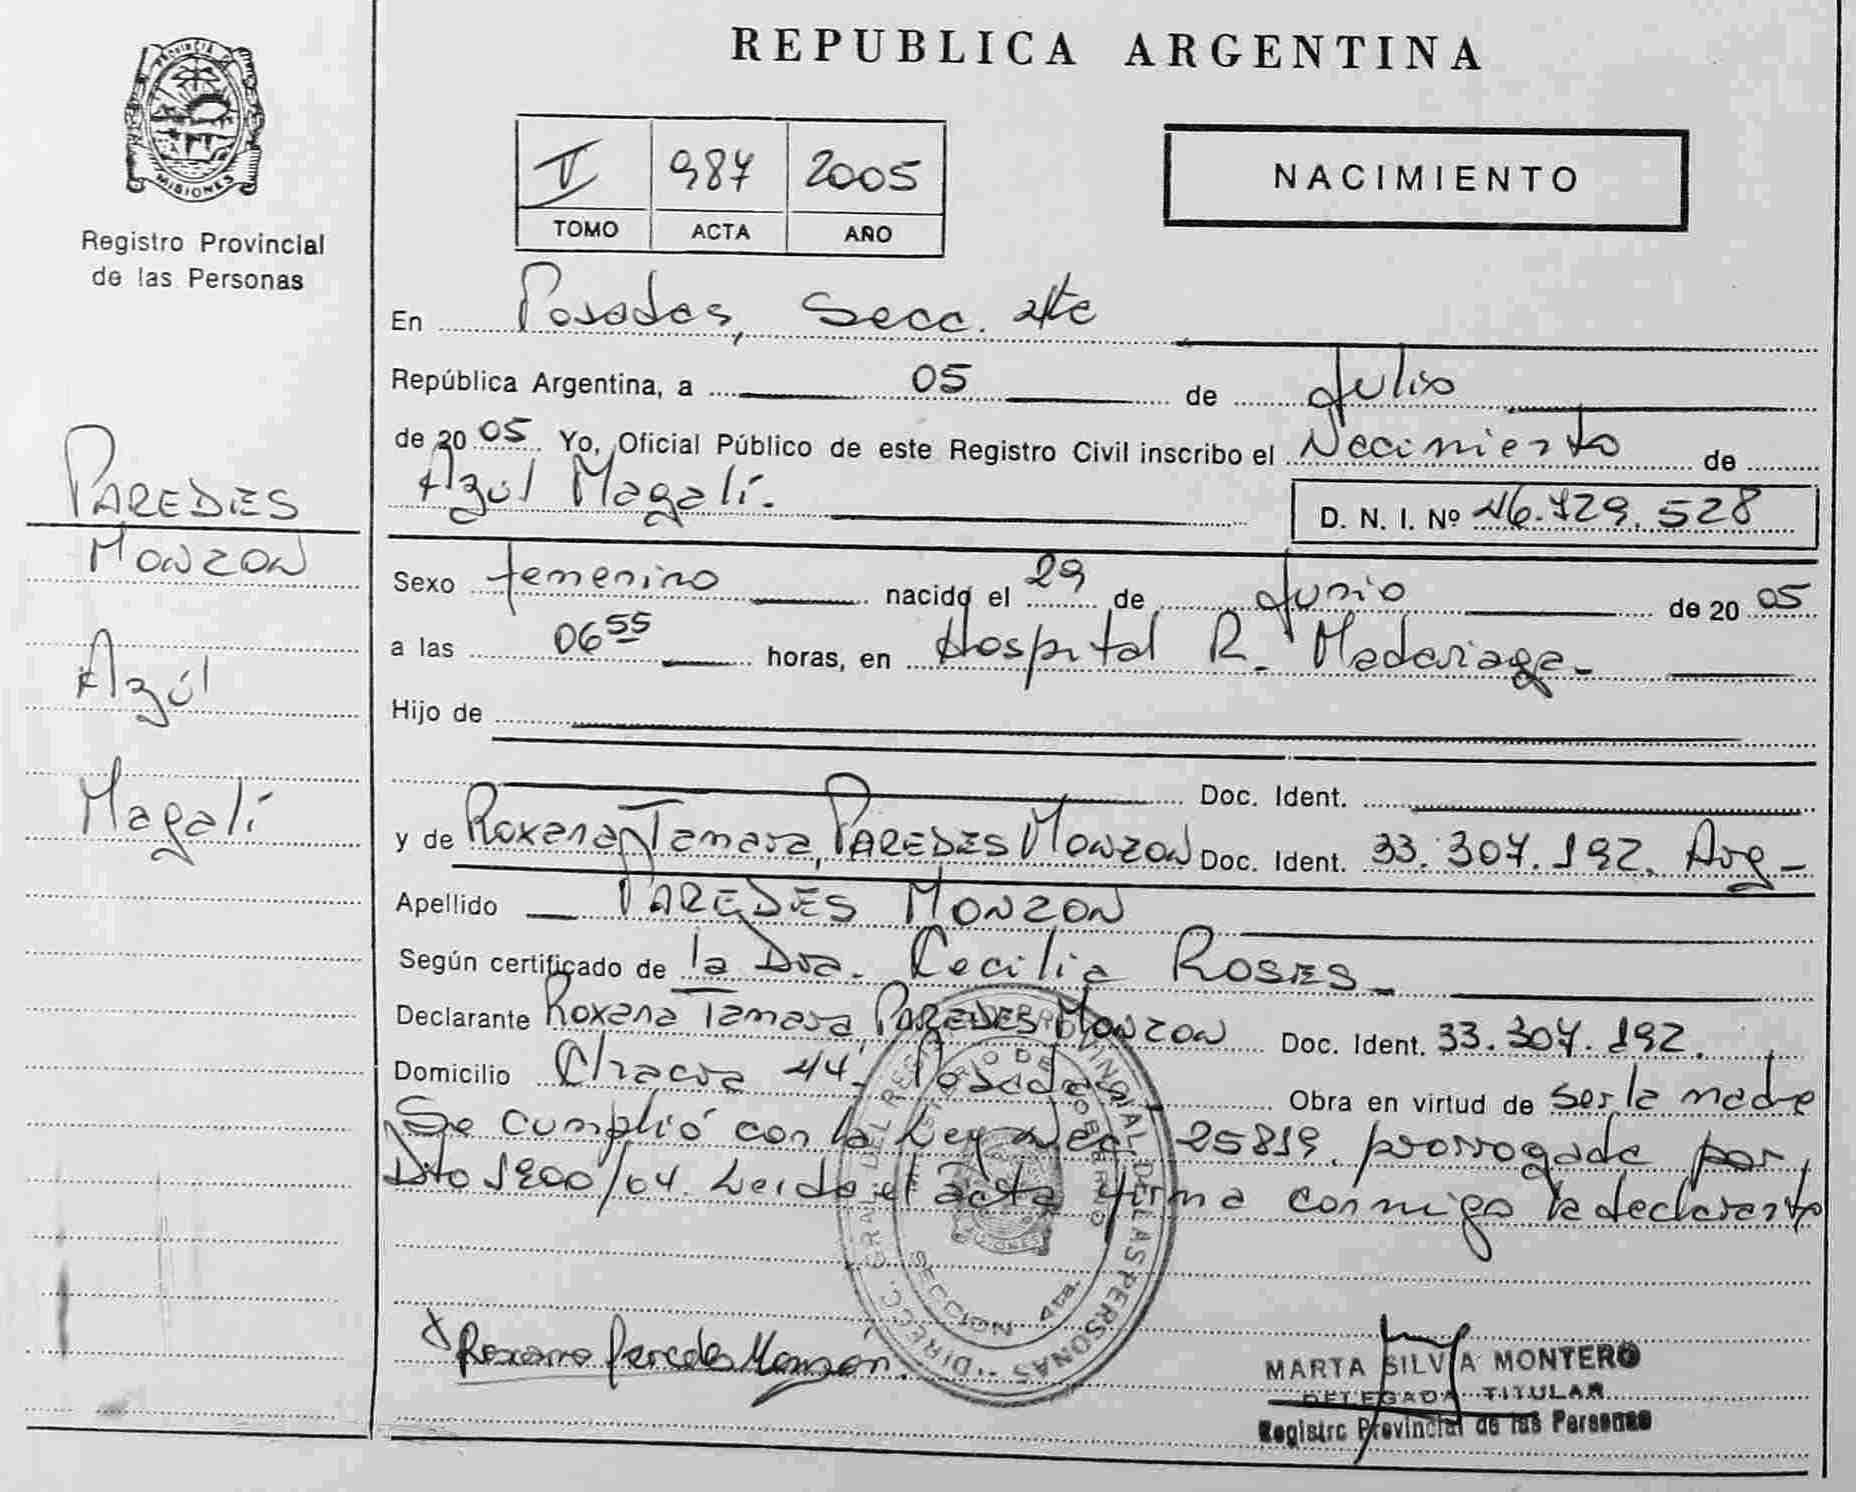 REPUBLICA ARGENTINA
PROVINCIA DE
MISIONES
Registro Provincial
de las Personas
II 987 2005
TOMO ACTA AÑO
NACIMIENTO
En Posadas, Secc. 4ta
República Argentina, a 05 de Julio
de 2005 Yo, Oficial Público de este Registro Civil inscribo el Nacimiento de
Azúl Magalí.
D. N. I. Nº 46.729.528
Sexo femenino nacido el 29 de Junio de 2005
a las 06 55 horas, en Hospital R. Madariaga
Hijo de
Doc. Ident.
y de Roxana Tamara, PAREDES MONZON Doc. Ident. 33.307.192. Arg
Apellido PAREDES MONZON
Según certificado de la Dra. Cecilia ROSES
Declarante Roxana Tamara PAREDES MONZON Doc. Ident. 33.307.192.
Domicilio Chacra 44. Posadas Obra en virtud de ser la madre
Se cumplió con la Ley Nac 25819. prorrogada por
Dto 1200/04. Leida el acta firma conmigo la declarante
PAREDES
MONZON
Azúl
Magalí
"DIRECC. GRAL DEL REG. PROVINCIAL DE LAS PERSONAS"
MINISTERIO DE GOBIERNO
MISIONES
SECCION 4ta.
x Roxana Paredes Monzón.
MARTA SILVIA MONTERO
DELEGADA TITULAR
Registro Provincial de las Personas